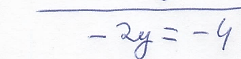 -2y = -4